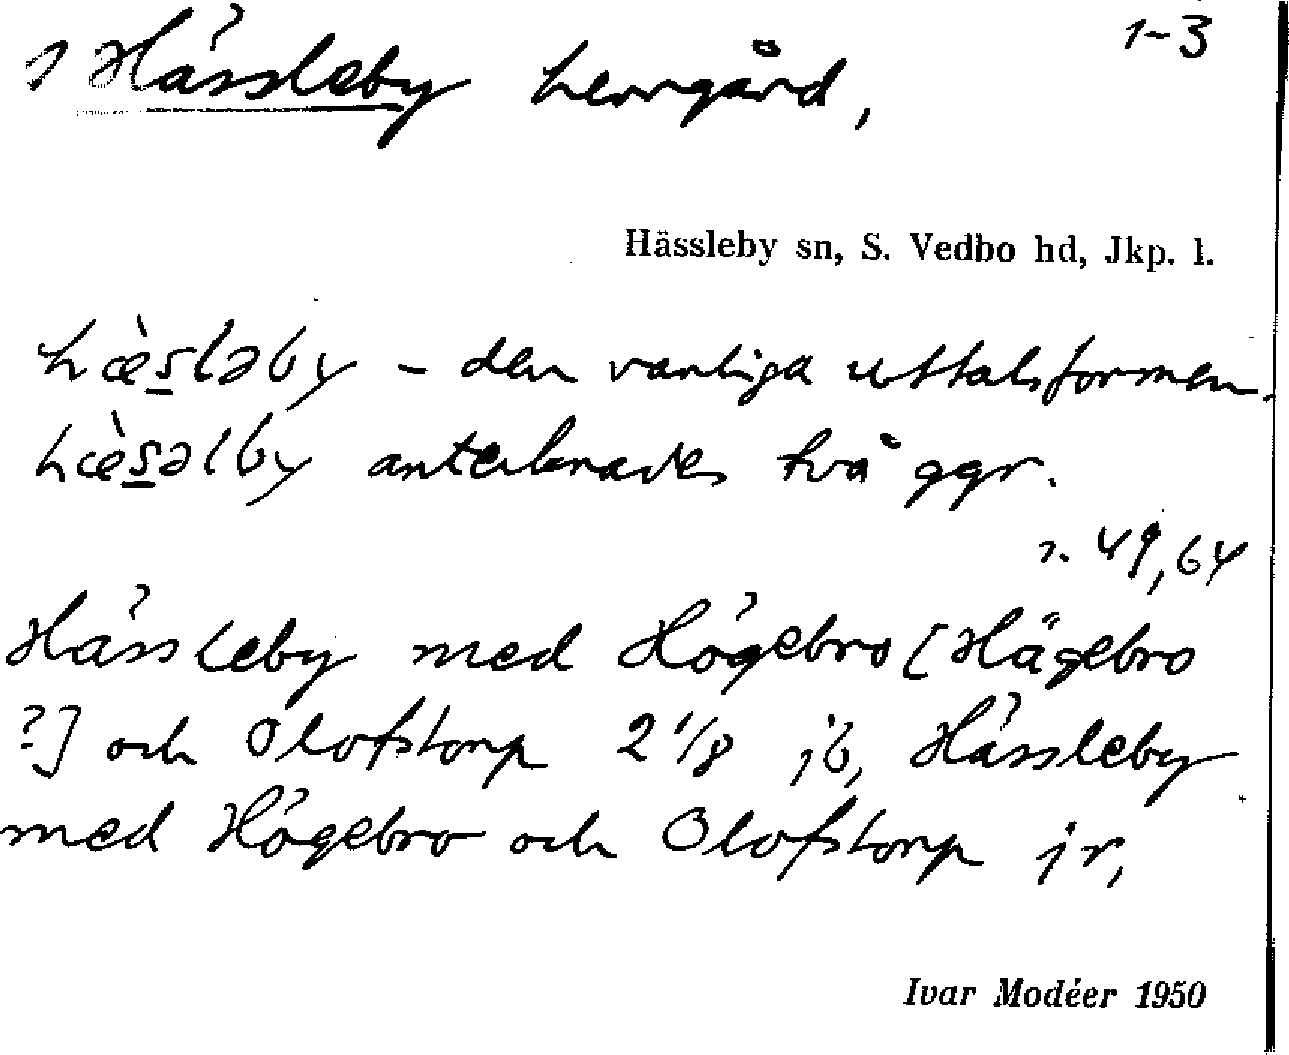 1 Hässleby herrgård,
1-3
Hässleby sn, S. Vedbo hd, Jkp. l.
hæ̀s̠ləby – den vanliga uttalsformen.
hæ̀s̠əlby antecknades två ggr.
r. 49,64
Hässleby med Högebro [Hägebro
?] och Olofstorp 2 1/8 jb, Hässleby
med Högebro och Olofstorp jr,
Ivar Modéer 1950